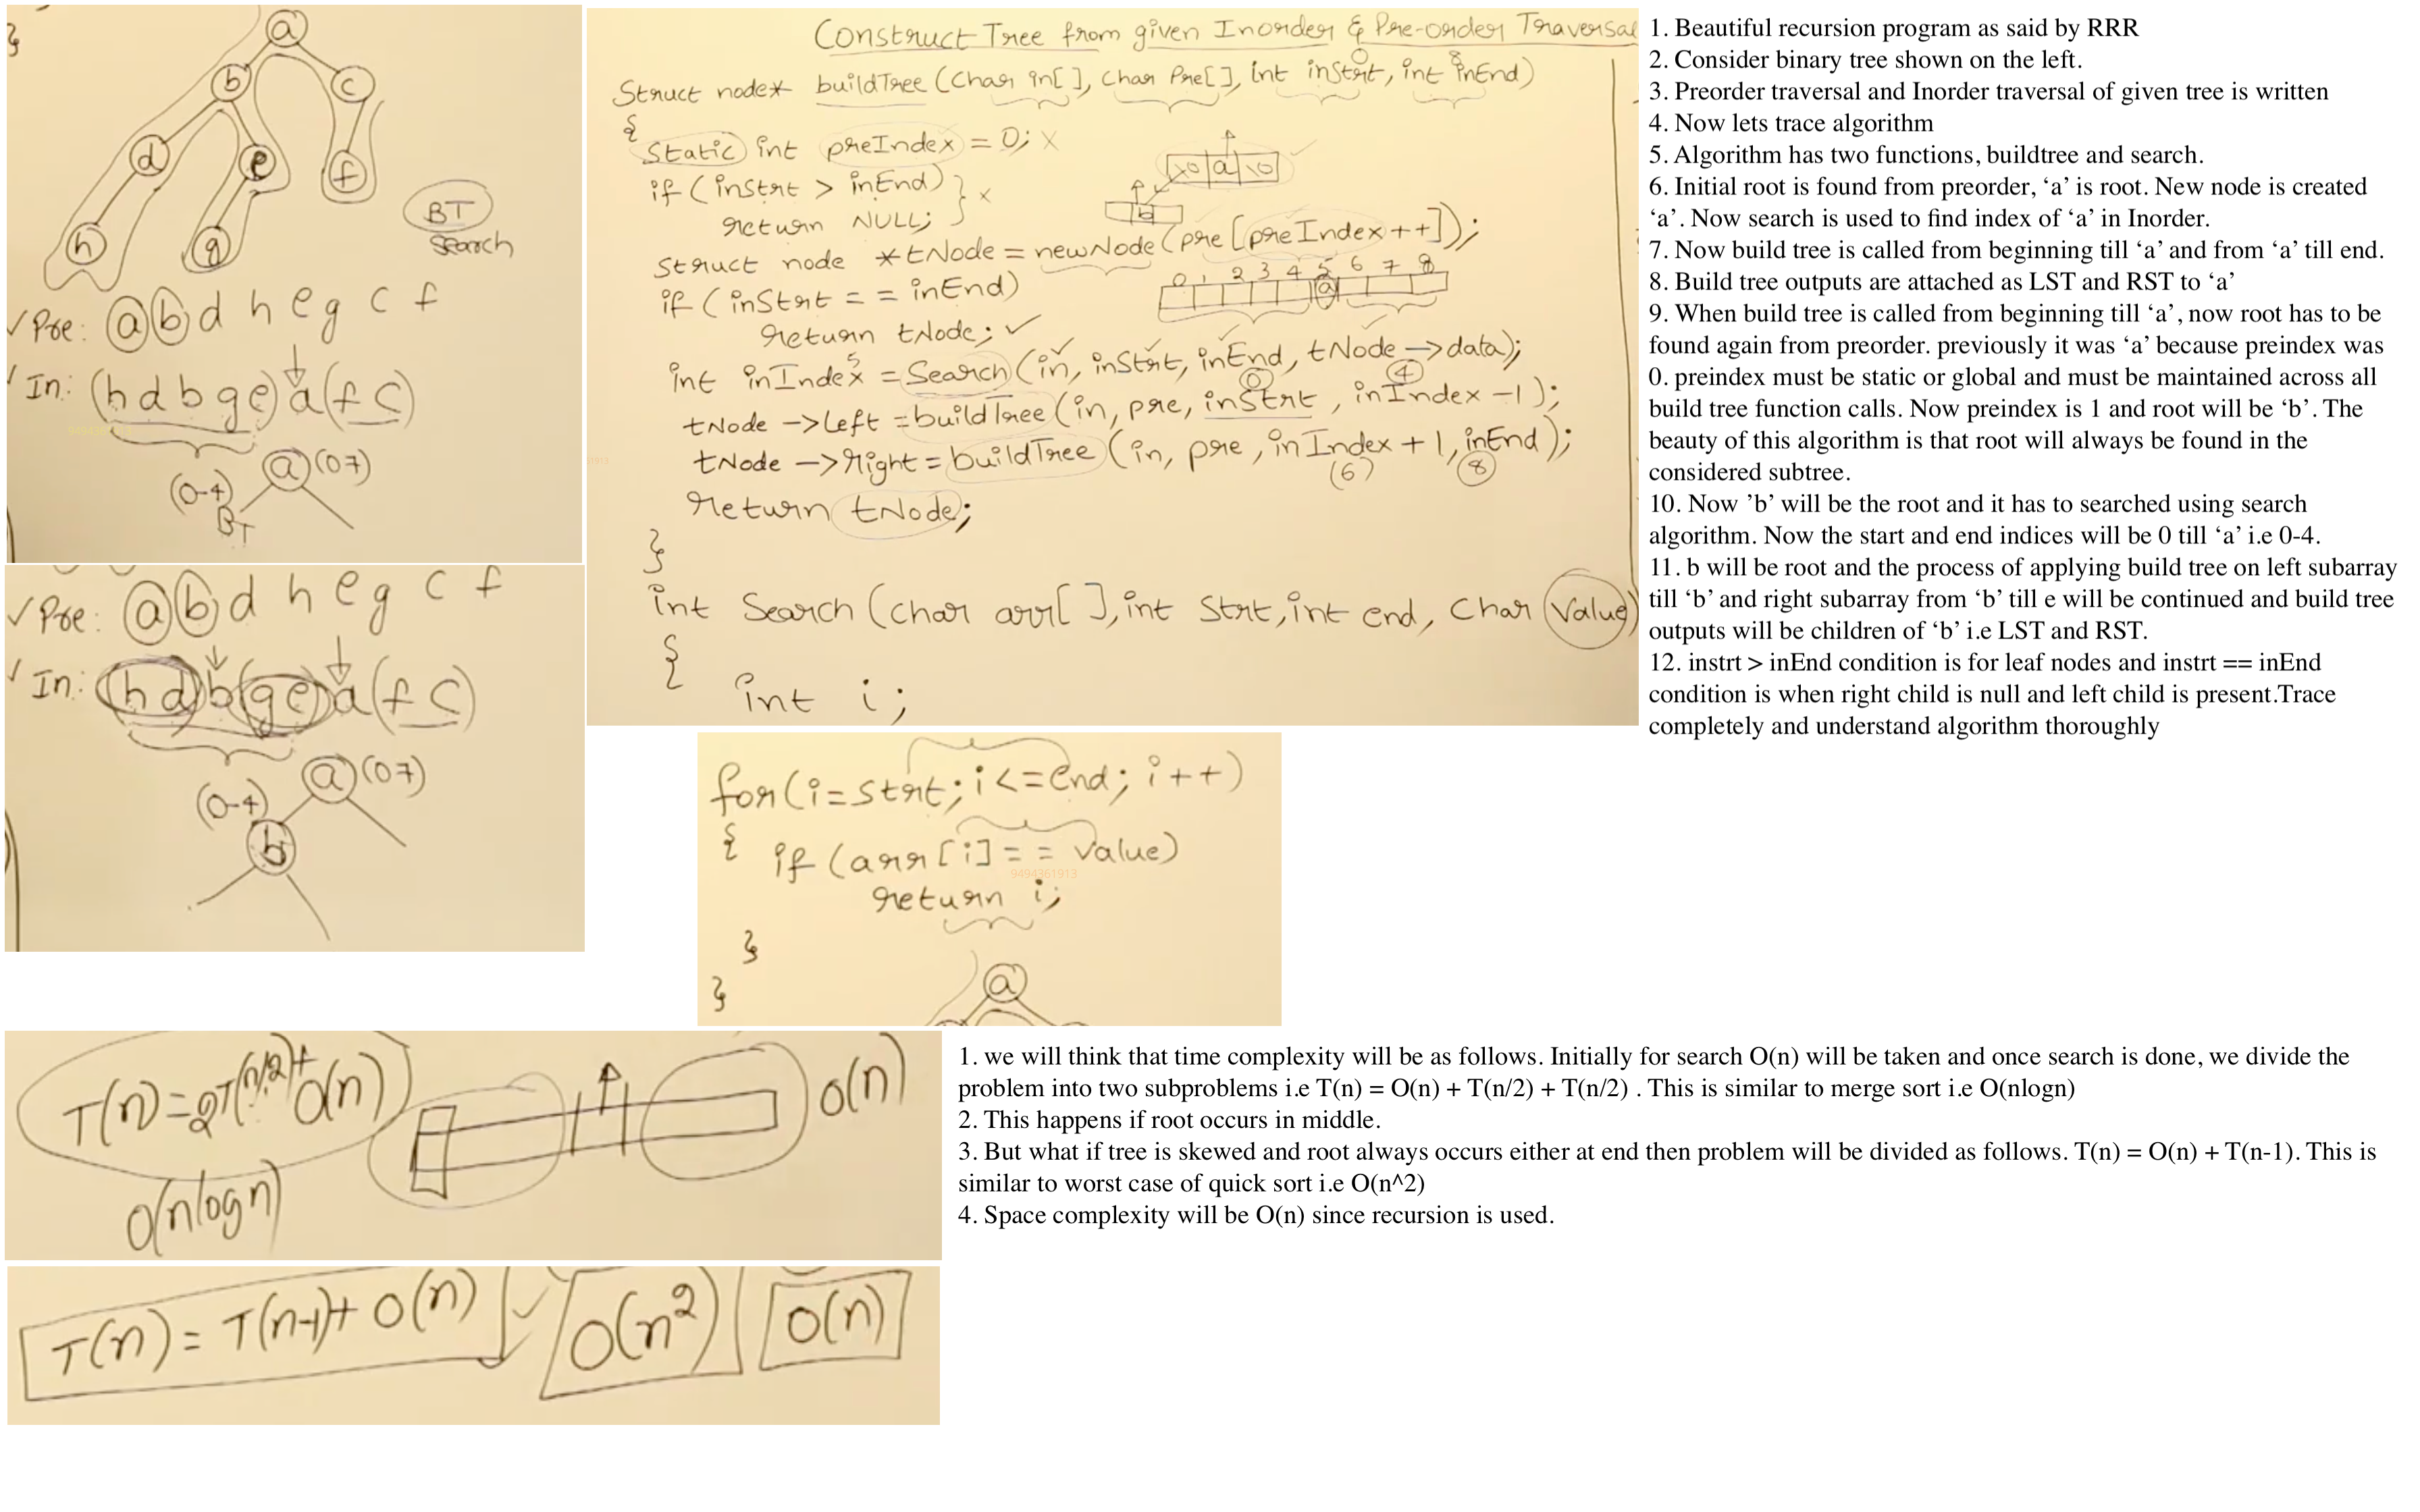 }
a
b
c
d
e
f
h
g
BT
Search
Pre: a b d h e g c f
In: (h d b g e) a (f c)
a (0 7)
(0-4)
BT
Construct Tree from given Inorder & Pre-order Traversal
0 8
Struct node* buildTree (Char in[ ], Char Pre[ ], int inStrt, int inEnd)
{
Static int preIndex = 0; x
if (inStrt > inEnd) } x
return NULL;
\0 a \0
b
Struct node *tNode = newNode (pre [preIndex++]);
if (inStrt = = inEnd)
0 1 2 3 4 5 6 7 8
a
return tNode;
5
int inIndex = Search (in, inStrt, inEnd, tNode -> data);
0 4
tNode -> left = buildTree (in, pre, inStrt, inIndex -1);
tNode -> right = buildTree (in, pre, inIndex + 1, inEnd);
(6) 8
return tNode;
}
int Search (char arr[ ], int Strt, int end, Char Value)
{
int i;
1. Beautiful recursion program as said by RRR
2. Consider binary tree shown on the left.
3. Preorder traversal and Inorder traversal of given tree is written
4. Now lets trace algorithm
5. Algorithm has two functions, buildtree and search.
6. Initial root is found from preorder, ‘a’ is root. New node is created
‘a’. Now search is used to find index of ‘a’ in Inorder.
7. Now build tree is called from beginning till ‘a’ and from ‘a’ till end.
8. Build tree outputs are attached as LST and RST to ‘a’
9. When build tree is called from beginning till ‘a’, now root has to be
found again from preorder. previously it was ‘a’ because preindex was
0. preindex must be static or global and must be maintained across all
build tree function calls. Now preindex is 1 and root will be ‘b’. The
beauty of this algorithm is that root will always be found in the
considered subtree.
10. Now ’b’ will be the root and it has to searched using search
algorithm. Now the start and end indices will be 0 till ‘a’ i.e 0-4.
11. b will be root and the process of applying build tree on left subarray
till ‘b’ and right subarray from ‘b’ till e will be continued and build tree
outputs will be children of ‘b’ i.e LST and RST.
12. instrt > inEnd condition is for leaf nodes and instrt == inEnd
condition is when right child is null and left child is present.Trace
completely and understand algorithm thoroughly
Pre: a b d h e g c f
In: (h d) b (g e) a (f c)
a (0 7)
(0-4)
b
for(i=strt; i<=end; i++)
{ if (arr[i]= = value)
9494361913
return i;
}
}
a
T(n)=2T(n/2)+O(n)
O(n)
O(nlogn)
1. we will think that time complexity will be as follows. Initially for search O(n) will be taken and once search is done, we divide the
problem into two subproblems i.e T(n) = O(n) + T(n/2) + T(n/2) . This is similar to merge sort i.e O(nlogn)
2. This happens if root occurs in middle.
3. But what if tree is skewed and root always occurs either at end then problem will be divided as follows. T(n) = O(n) + T(n-1). This is
similar to worst case of quick sort i.e O(n^2)
4. Space complexity will be O(n) since recursion is used.
T(n) = T(n-1)+ O(n) O(n²) O(n)